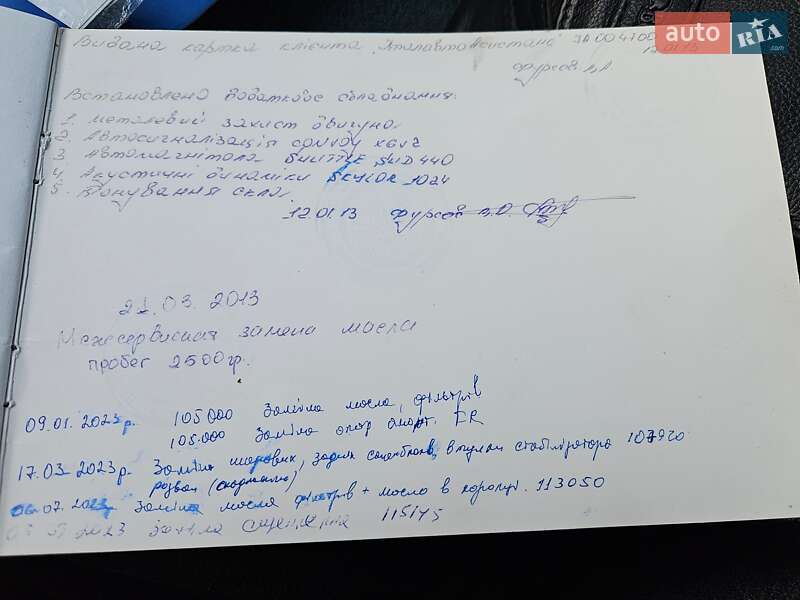 Видана картка клієнта "Італавтоасистанс" ЗА 004700
12.01.13
Фурсов
auto RIA.com
Встановлено додаткове обладнання:
1. Металевий захист двигуна.
2. Автосигналізація CONVOY XGV2
3. Автомагнітола SHUTTLE SUD 440
4. Акустичні динаміки SKYLOR 1024
5. Тонування скла.
12.01.13 Фурсов
21.03.2013
Межсервисная замена масла
пробег 2500
09.01.2023р. 105000 Заміна масла, фільтрів
105.000 Заміна опор аморт. FR
17.03.2023р. Заміна шаровик, задніх сайлентблоків, втулки стабілізатора 107920
розвал (сходження)
06.07.2023 Заміна масла фільтрів + масло в коробці. 113050
2023 заміна 115145